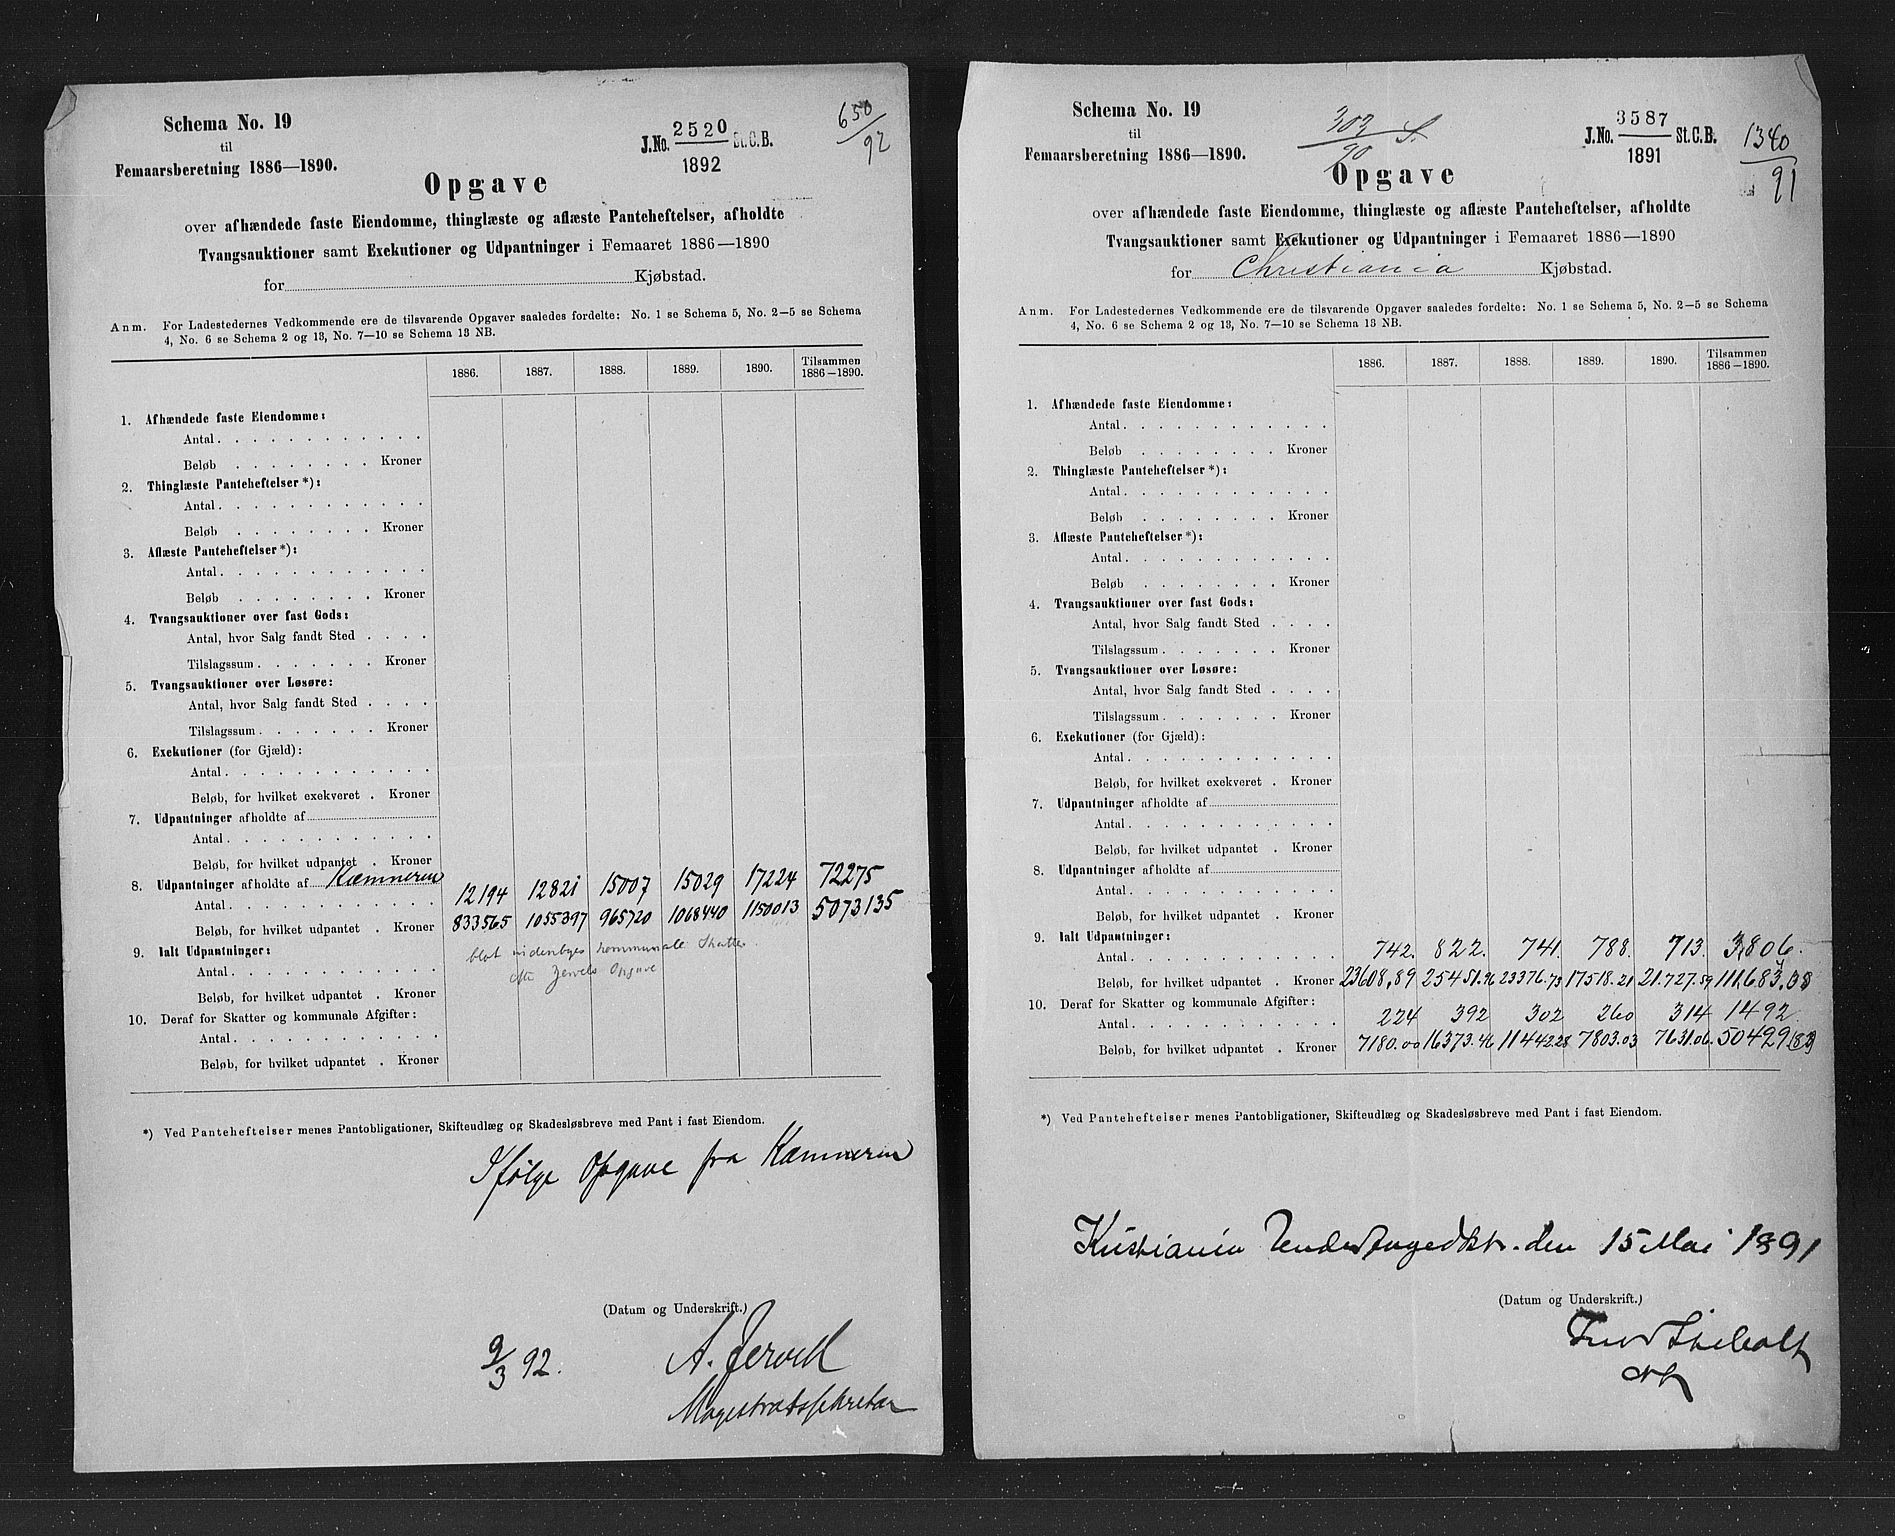 Schema No. 19
til
Femaarsberetning 1886—1890.
J.No. 2520 St.C.B.
1892
650
92
Opgave
over afhændede faste Eiendomme, thinglæste og aflæste Panteheftelser, afholdte
Tvangsauktioner samt Exekutioner og Udpantninger i Femaaret 1886—1890
for Kjøbstad.
Anm. For Ladestedernes Vedkommende ere de tilsvarende Opgaver saaledes fordelte: No. 1 se Schema 5, No. 2—5 se Schema
4, No. 6 se Schema 2 og 13, No. 7—10 se Schema 13 NB.
1886. 1887. 1888. 1889. 1890. Tilsammen
1886—1890.
1. Afhændede faste Eiendomme:
Antal
Beløb Kroner
2. Thinglæste Panteheftelser*):
Antal
Beløb Kroner
3. Aflæste Panteheftelser*):
Antal
Beløb Kroner
4. Tvangsauktioner over fast Gods:
Antal, hvor Salg fandt Sted
Tilslagssum Kroner
5. Tvangsauktioner over Løsøre:
Antal, hvor Salg fandt Sted
Tilslagssum Kroner
6. Exekutioner (for Gjæld):
Antal
Beløb, for hvilket exekveret Kroner
7. Udpantninger afholdte af
Antal
Beløb, for hvilket udpantet Kroner
8. Udpantninger afholdte af Kæmneren
Antal 12194 12821 15007 15029 17224 72275
Beløb, for hvilket udpantet Kroner 833565 1055397 965720 1068440 1150013 5073135
9. Ialt Udpantninger:
blot kommunale Skatter.
Antal
Opgave
Beløb, for hvilket udpantet Kroner
10. Deraf for Skatter og kommunale Afgifter:
Antal
Beløb, for hvilket udpantet Kroner
*) Ved Panteheftelser menes Pantobligationer, Skifteudlæg og Skadesløsbreve med Pant i fast Eiendom.
Ifølge Opgave fra Kæmneren
(Datum og Underskrift.)
9/3 92. A. Jervell
Magistratssekretær
Schema No. 19
til
Femaarsberetning 1886—1890.
303
90
J.No. 3587 St.C.B.
1891
1340
91
Opgave
over afhændede faste Eiendomme, thinglæste og aflæste Panteheftelser, afholdte
Tvangsauktioner samt Exekutioner og Udpantninger i Femaaret 1886—1890
for Christiania Kjøbstad.
Anm. For Ladestedernes Vedkommende ere de tilsvarende Opgaver saaledes fordelte: No. 1 se Schema 5, No. 2—5 se Schema
4, No. 6 se Schema 2 og 13, No. 7—10 se Schema 13 NB.
1886. 1887. 1888. 1889. 1890. Tilsammen
1886—1890.
1. Afhændede faste Eiendomme:
Antal
Beløb Kroner
2. Thinglæste Panteheftelser*):
Antal
Beløb Kroner
3. Aflæste Panteheftelser*):
Antal
Beløb Kroner
4. Tvangsauktioner over fast Gods:
Antal, hvor Salg fandt Sted
Tilslagssum Kroner
5. Tvangsauktioner over Løsøre:
Antal, hvor Salg fandt Sted
Tilslagssum Kroner
6. Exekutioner (for Gjæld):
Antal
Beløb, for hvilket exekveret Kroner
7. Udpantninger afholdte af
Antal
Beløb, for hvilket udpantet Kroner
8. Udpantninger afholdte af
Antal
Beløb, for hvilket udpantet Kroner
9. Ialt Udpantninger:
Antal 742. 822. 741. 788. 713. 3,806.
Beløb, for hvilket udpantet Kroner 23608,89 25451.96 23376.73 17518.21 21.727.59
10. Deraf for Skatter og kommunale Afgifter:
Antal 224 392 302 260 314 1492
Beløb, for hvilket udpantet Kroner 7180.00 16373.46 11442.28 7803.03 7631.06.
*) Ved Panteheftelser menes Pantobligationer, Skifteudlæg og Skadesløsbreve med Pant i fast Eiendom.
Kristiania den 15 Mai 1891
(Datum og Underskrift.)